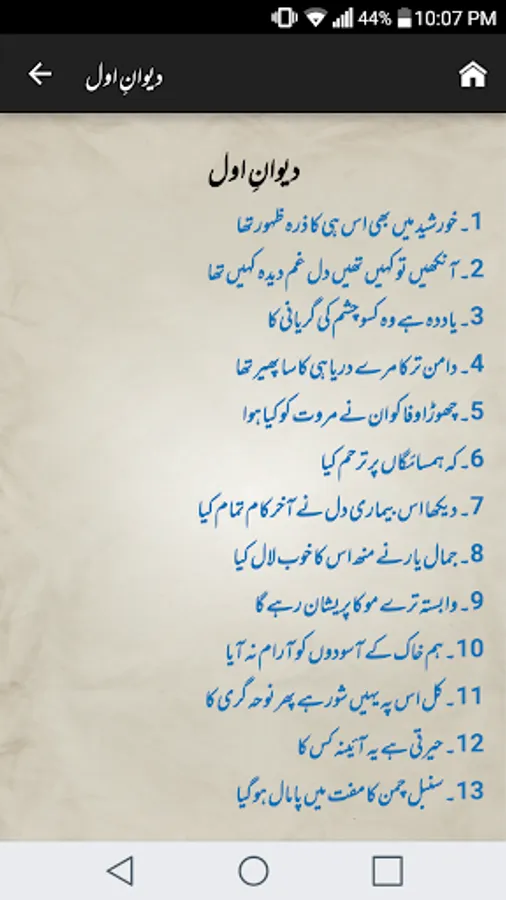 44% 10:07 PM
دیوانِ اول
دیوانِ اول
1۔ خورشید میں بھی اس ہی کا ذرہ ظہور تھا
2۔ آنکھیں تو کہیں تھیں دل غم دیدہ کہیں تھا
3۔ یاددہ ہے وہ کسو چشم کی گریانی کا
4۔ دامن تر کا مرے دریا ہی کا سا پھیر تھا
5۔ چھوڑا وفا کو ان نے مروت کو کیا ہوا
6۔ کہ ہمسائگاں پر ترحم کیا
7۔ دیکھا اس بیماری دل نے آخر کام تمام کیا
8۔ جمال یار نے منھ اس کا خوب لال کیا
9۔ وابستہ ترے موکا پریشان رہے گا
10۔ ہم خاک کے آسودوں کو آرام نہ آیا
11۔ کل اس پہ یہیں شور ہے پھر نوحہ گری کا
12۔ حیرتی ہے یہ آئینہ کس کا
13۔ سنبل چمن کا مفت میں پامال ہوگیا